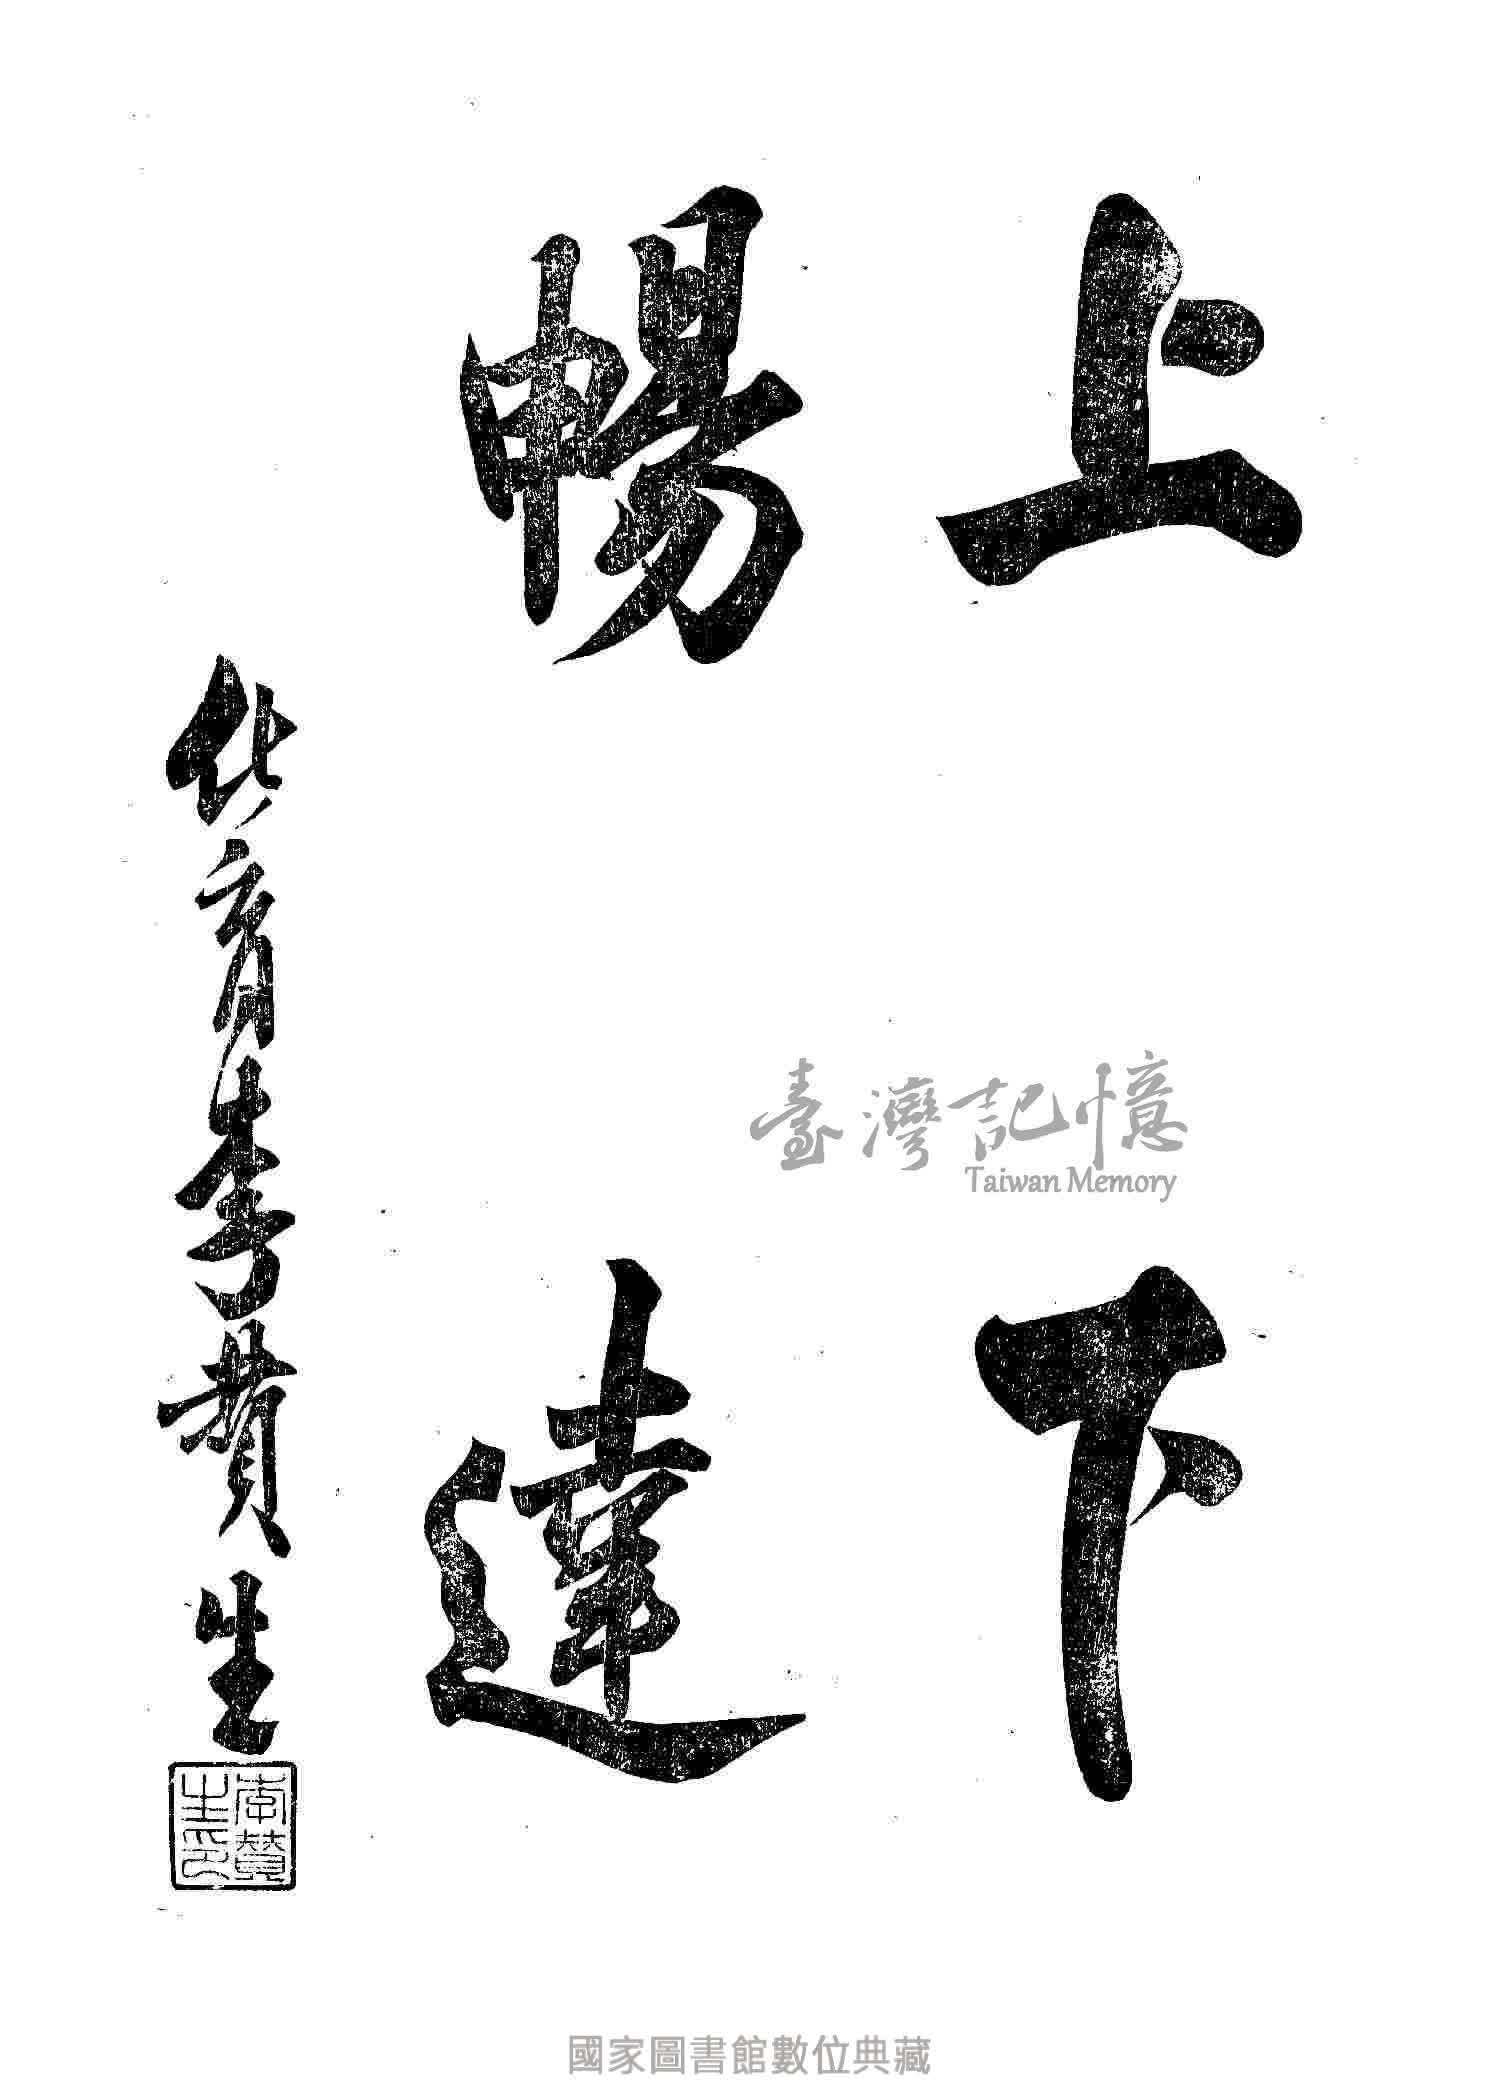 上下
暢達
化育李贊生
李贊
生印
臺灣記憶
Taiwan Memory
國家圖書館數位典藏